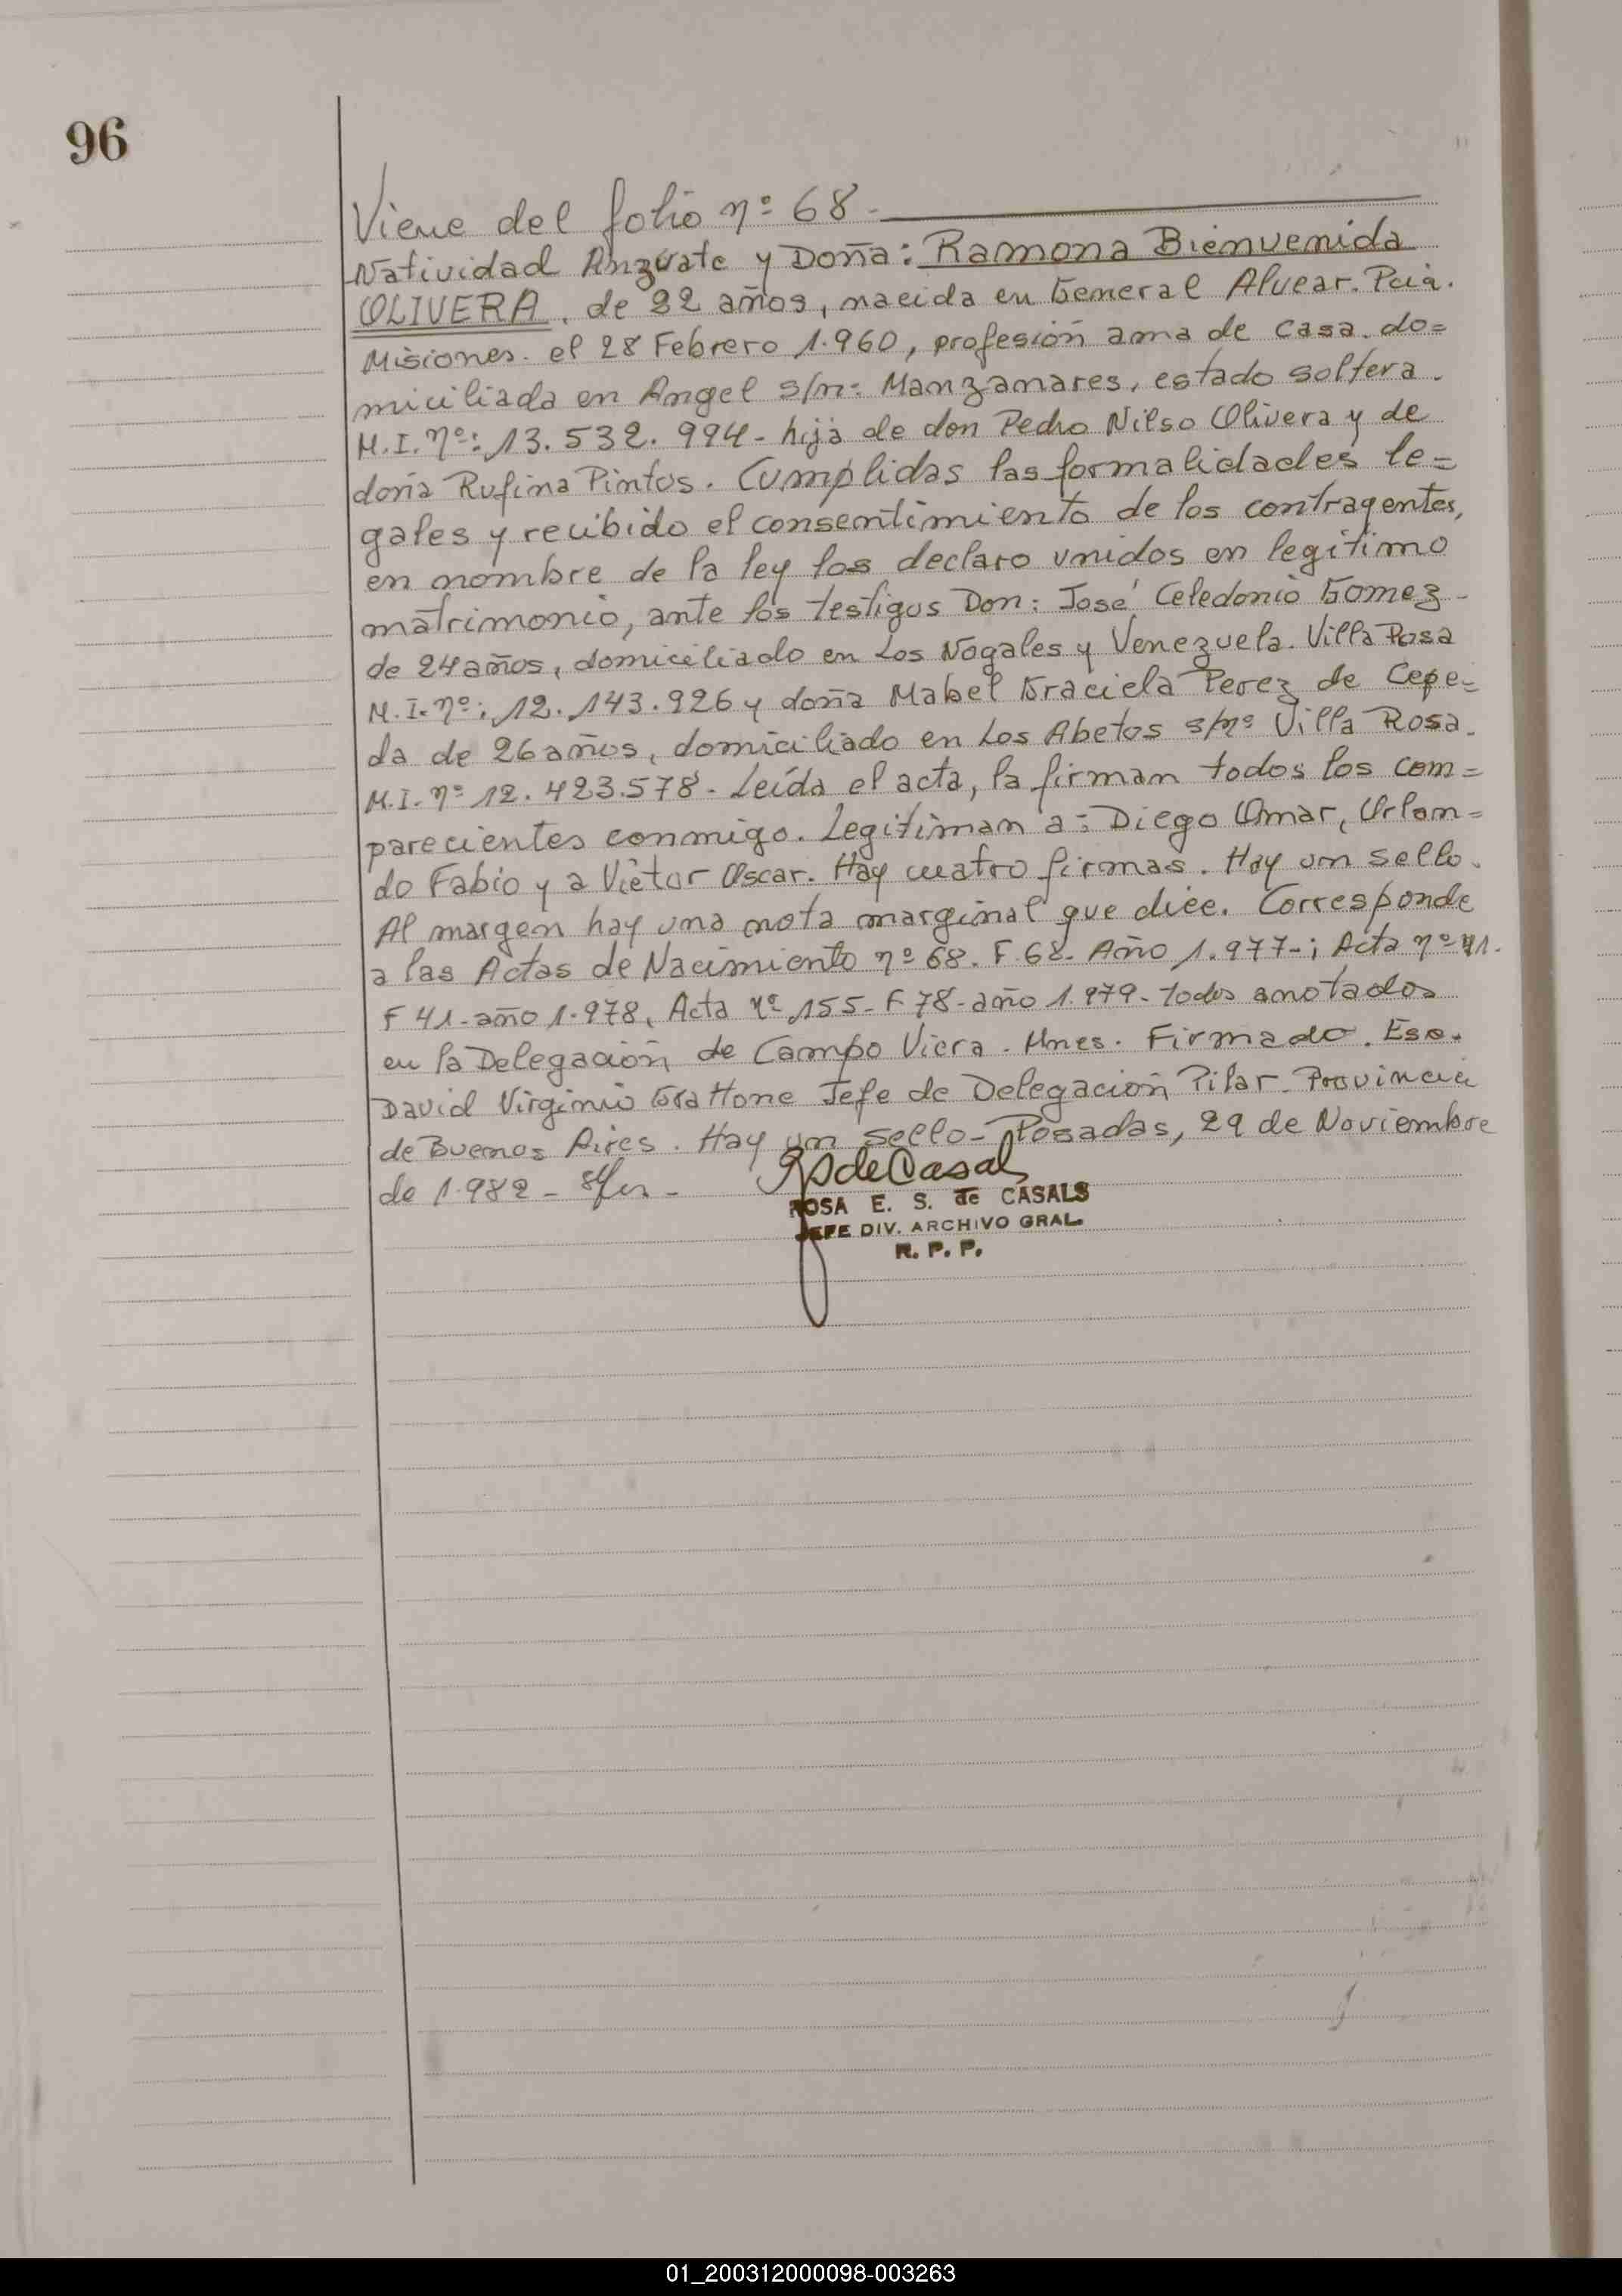 96
Viene del folio nº 68-
Natividad Anzuate y Doña: Ramona Bienvenida
OLIVERA, de 22 años, nacida en General Alvear. Pcia.
Misiones. el 28 Febrero 1.960, profesión ama de casa. do=
miciliada en Angel s/nº Manzanares, estado soltera.
M.I.nº: 13.532.994- hija de don Pedro Nilso Olivera y de
doña Rufina Pintos. Cumplidas las formalidades le=
gales y recibido el consentimiento de los contragentes,
en nombre de la ley los declaro unidos en legítimo
matrimonio, ante los testigos Don: José Celedonio Gomez-
de 24 años, domiciliado en Los Nogales y Venezuela. Villa Rosa
M.I.nº: 12.143.926 y doña Mabel Graciela Perez de Cepe=
da de 26 años, domiciliado en Los Abetos s/nº Villa Rosa.
M.I.nº 12.423.578- Leída el acta, la firman todos los com=
parecientes conmigo. Legitiman a: Diego Omar, Orlan=
do Fabio y a Victor Oscar. Hay cuatro firmas. Hay un sello.
Al margen hay una nota marginal que dice. Corresponde
a las Actas de Nacimiento nº 68. F.68- Año 1.977-; Acta nº 41.
F 41-año 1.978, Acta nº 155-F 78-año 1.979- todos anotados
en la Delegación de Campo Viera. Mnes. Firmado. Eso.
David Virginio Grattone Jefe de Delegación Pilar. Provincia
de Buenos Aires. Hay un sello- Posadas, 29 de Noviembre
de 1.982-
RSdeCasals
ROSA E. S. de CASALS
JEFE DIV. ARCHIVO GRAL.
R. P. P.
01_200312000098-003263